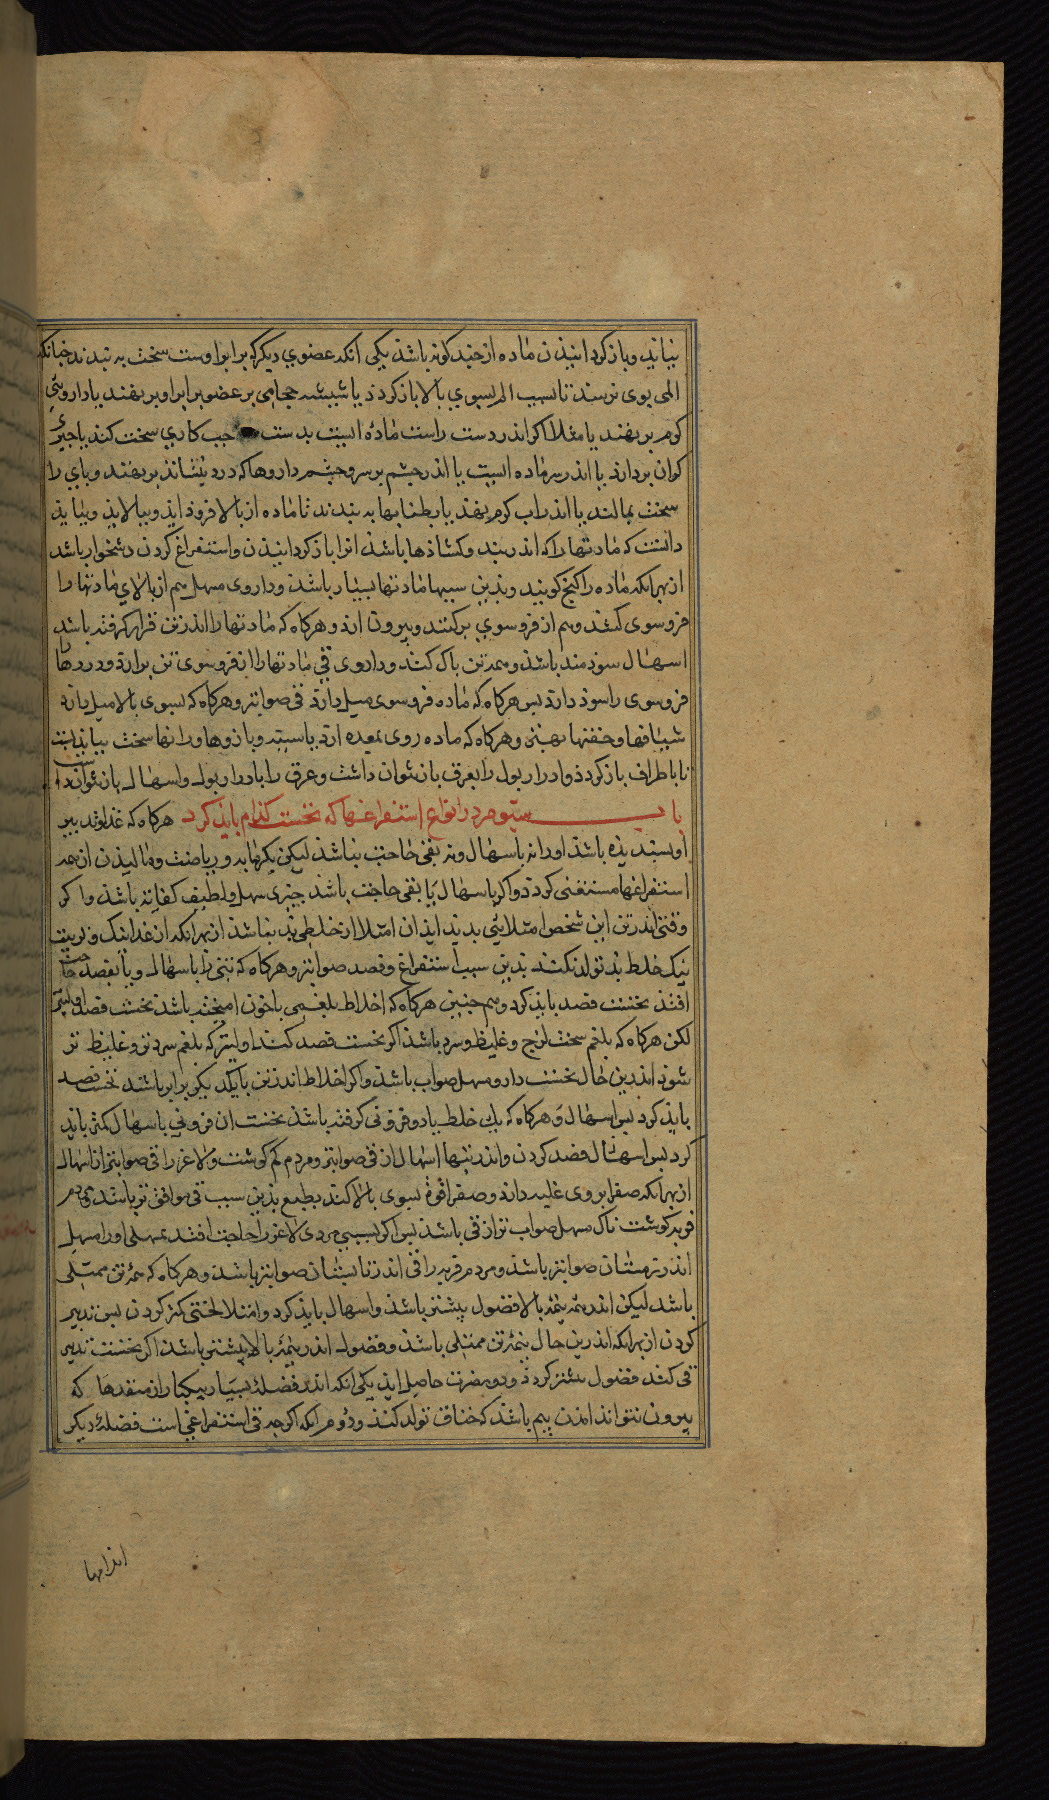 بیاید و باز کردانیدن ماده از چند کونه باشد یکی انکه عضوی دیکر که برابر اوست سخت به بندند چنانکه
المی بوی رسد تا بسبب الم بسوی بالا باز کردد یا شیشه حجامی بر عضو برابر او بر نهند یا داروئی
کرم بر نهند یا مثلا اکر اندر دست راست ماده ایست بدست چب کاری سخت کند یا چیزی
کران بردارد یا اندر سر ماده ایست یا اندر چشم بر سر و چشم داروها که درد بنشاند بر نهند و پای را
سخت بمالند یا اندر اب کرم نهند یا بطنابها به بندند تا ماده از بالا فروذ اید و ببالاید و بباید
دانست که مادتها را که اندر بند و کشاذها باشد انرا باز کردانیدن و استفراغ کردن دشخوار باشد
از بهر انکه ماده را کنج کویند و بدین سببها مادتها بسیار باشد و داروی مسهل هم از بالای مادتها را
فرو سوی کشد و هم از فرو سوی برکند و بیرون ارد و هرکاه که مادتها را اندر تن قرار کرفته باشد
اسهال سودمند باشد و همه تن باک کند و داروی قی مادتها را از فرو سوی تن برارد و دردها
فرو سوی را سود دارد بس هرکاه که ماده فرو سوی میل دارد قی صوابتر و هرکاه که بسوی بالا میل دارد
شیافها و حقنها بهتر و هرکاه که ماده روی بمعده ارد یا سینه و بازوها و رانها سخت بباید بست
تا باطراف باز کردد و ادرار بول را بعرق باز توان داشت و عرق را بادرار بول و اسهال باز توان داشت
باب سیوم در انواع استفراغها که نخست کدام باید کرد هرکاه که غذا و تدبیر
او پسندیده باشد او را نه باسهال و نه بقی حاجت نباشد لیکن بکرمابه و ریاضت و مالیدن از همه
استفراغها مستغنی کردد و اکر باسهال یا بقی حاجت باشد چیزی سهل و لطیف کفایه باشد و اکر
وقتی اندر تن این شخص امتلائی بدید اید ان امتلا از خلطی بد نباشد از بهر انکه از غذا نیک و تربیت
نیک خلط بد تولد نکند بدین سبب استفراغ و فصد صوابتر و هرکاه که تنی را باسهال و یا بفصد حاجت
افتد نخست فصد باید کرد و هم چنین هرکاه که اخلاط بلغمی با خون امیخته باشد نخست فصد اولیتر
لکن هرکاه که بلغم سخت لزج و غلیظ و سرد باشد اکر نخست فصد کنند اولیتر که بلغم سردتر و غلیظ تر
شود اندرین حال نخست دارو مسهل صواب باشد و اکر اخلاط اندر تن با یکدیکر برابر باشند نخست فصد
باید کرد بس اسهال و هرکاه که یک خلط یا دو فزونی کرفته باشد نخست ان فزونی باسهال کمتر باید
کرد بس اسهال فصد کردن و اندر تنها اسهال از قی صوابتر و مردم کم کوشت و لاغر را قی صوابتر از اسهال
از بهر انکه صفرا بر وی غلبه دارد و صفرا قوه بسوی بالا کند بطبع بدین سبب قی موافق تر باشد و مردم
فربه کوشت ناک مسهل صواب تر از قی باشد بس اکر بسببی مردی لاغر را حاجت افتد بمسهلی او را مسهل
اندر زمستان صوابتر باشد و مردم فربه را قی اندر تابستان صوابتر باشد و هرکاه که همه تن ممتلی
باشد لیکن اندر نیمه بالا فضول بیشتر باشد و اسهال باید کرد و امتلا لختی کمتر کردن بس تدبیر
کردن از بهر انکه اندرین حال همه تن ممتلی باشد و فضول اندر نیمه بالا بیشتر باشد اکر نخست تدبیر
قی کند فضول بیشتر کردد و دو مضرت حاصل اید یکی انکه اندر فضله بسیار بیکبار از منفذها که
بیرون نتواند امدن بیم باشد که خناق تولد کند و دوم انکه اکر چه قی استفراغی است فضله دیکر
اندامها